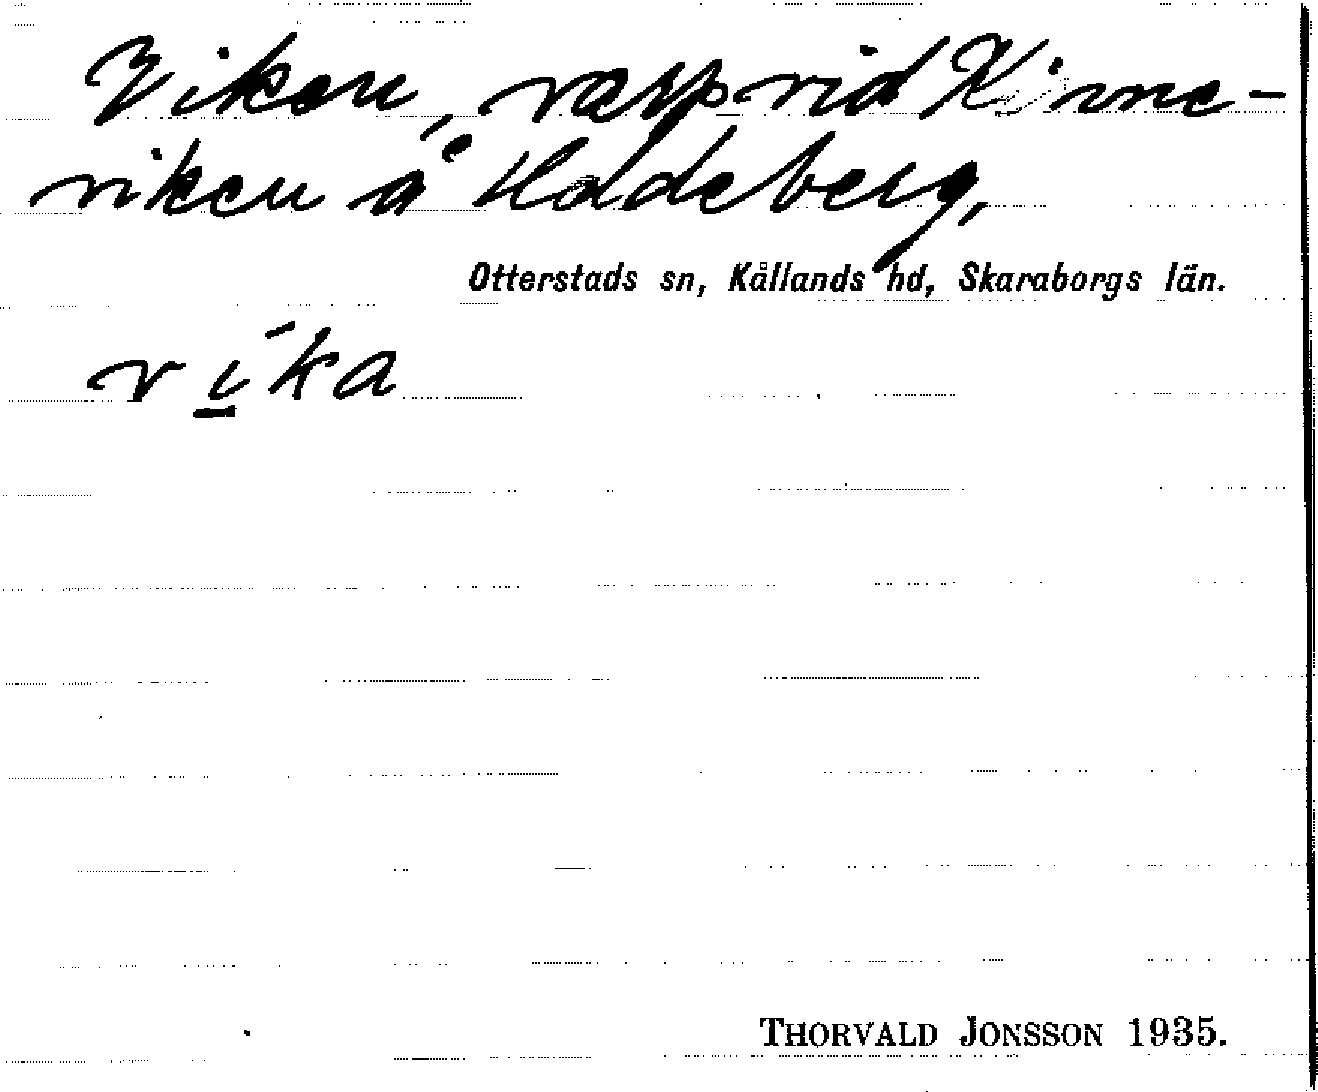 Viken, vassp vid Kinne-
viken å Hadeberg,
Otterstads sn, Kållands hd, Skaraborgs län.
ví̲ka
THORVALD JONSSON 1935.